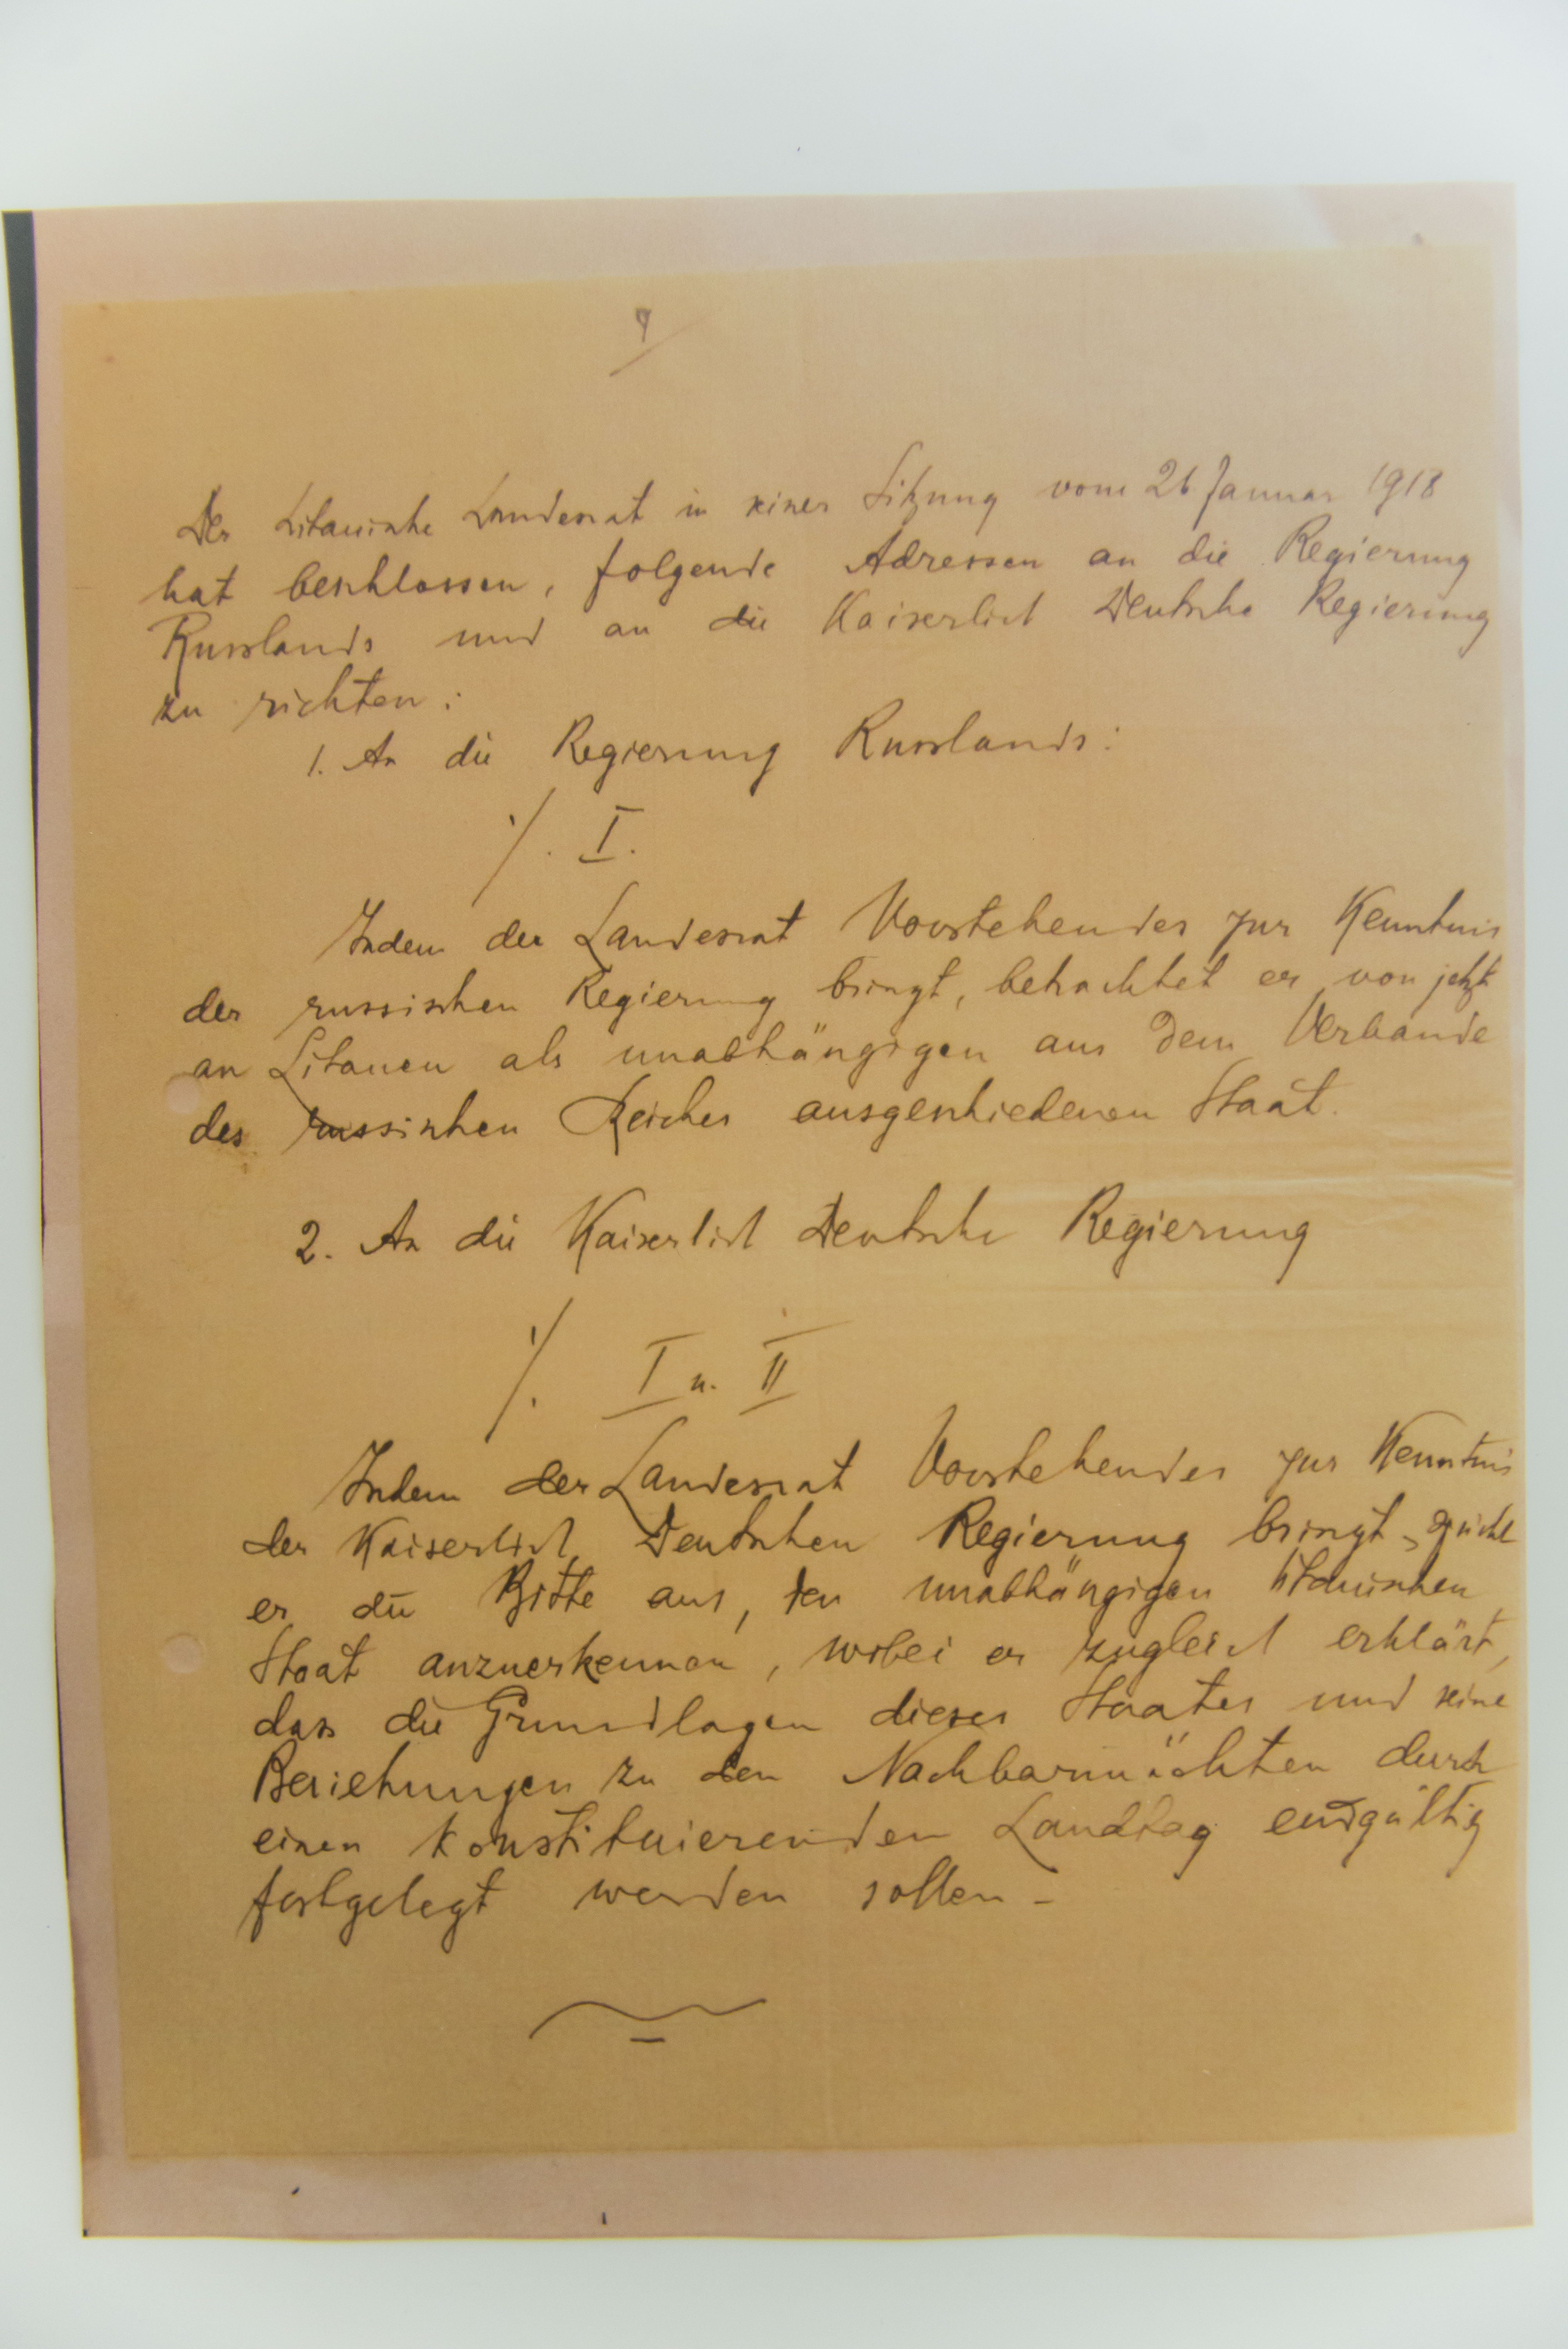 Der Litauische Landesrat in seiner Sitzung vom 26 Januar 1918
hat beschlossen, folgende Adressen an die Regierung
Russlands und an die Kaiserlich Deutsche Regierung
zu richten:
1. An die Regierung Russlands:
./. I.
Indem der Landesrat Vorstehendes zur Kenntnis
der russischen Regierung bringt, betrachtet er von jetzt
an Litauen als unabhängigen aus dem Verbande
des russischen Reiches ausgeschiedenen Staat.
2. An die Kaiserlich Deutsche Regierung
./. I u. II
Indem der Landesrat Vorstehendes zur Kenntnis
der Kaiserlich Deutschen Regierung bringt, spricht
er die Bitte aus, den unabhängigen litauischen
Staat anzuerkennen, wobei er zugleich erklärt,
dass die Grundlagen dieses Staates und seine
Beziehungen zu den Nachbarmächten durch
einen konstituierenden Landtag endgültig
festgelegt werden sollen -